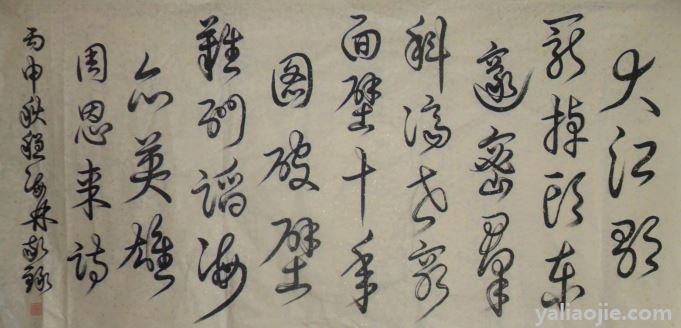 大江歌
罷掉頭東
邃密羣
科濟世窮
面壁十年
圖破壁
難酬蹈海
亦英雄
周恩来詩
丙申秋海林敬錄
yaliaojie.com